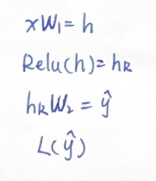 xW₁ = h
Relu(h) = hR
hRW₂ = ŷ
L(ŷ)